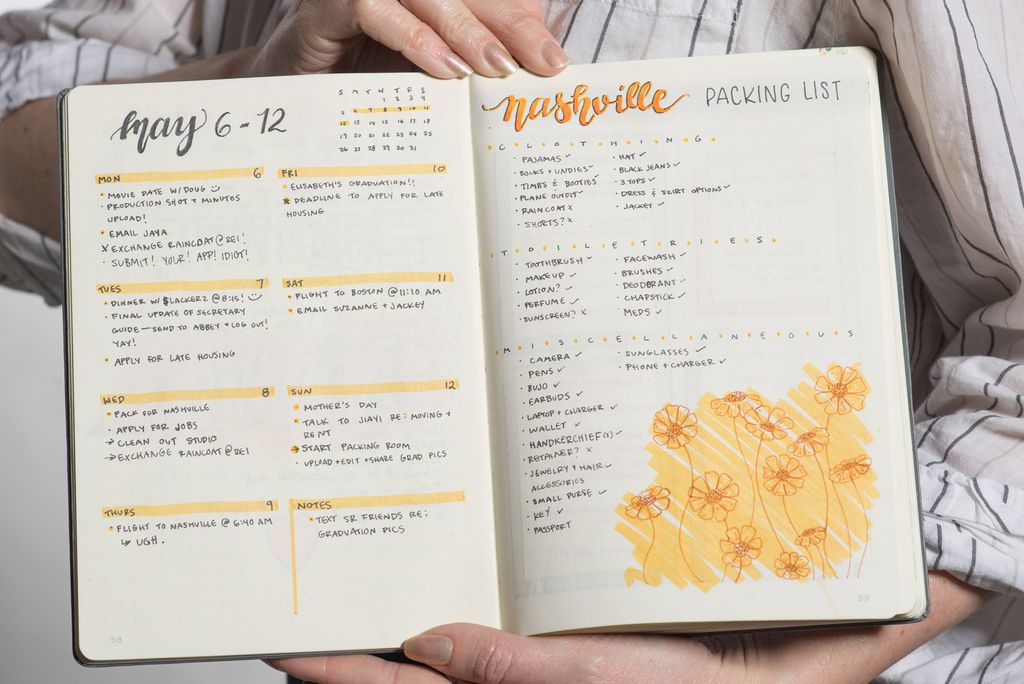 may 6-12
S M T W T F S
1 2 3 4
5 6 7 8 9 10 11
12 13 14 15 16 17 18
19 20 21 22 23 24 25
26 27 28 29 30 31
MON 6
• MOVIE DATE W/ DOUG
• PRODUCTION SHOT + MINUTES
UPLOAD!
• EMAIL JAYA
X EXCHANGE RAINCOAT @ REI!
• SUBMIT! YOUR! APP! IDIOT!
TUES 7
• DINNER W/ $LACKERZ @ 8:15!
• FINAL UPDATE OF SECRETARY
GUIDE—SEND TO ABBEY + LOG OUT!
YAY!
• APPLY FOR LATE HOUSING
WED 8
• PACK FOR NASHVILLE
• APPLY FOR JOBS
→ CLEAN OUT STUDIO
→ EXCHANGE RAINCOAT @ REI
THURS 9
• FLIGHT TO NASHVILLE @ 6:40 AM
↳ UGH.
FRI 10
• ELISABETH'S GRADUATION!!
★ DEADLINE TO APPLY FOR LATE
HOUSING
SAT 11
• FLIGHT TO BOSTON @ 11:10 AM
• EMAIL SUZANNE + JACKEY
SUN 12
• MOTHER'S DAY
• TALK TO JIAYI RE: MOVING +
RENT
→ START PACKING ROOM
• UPLOAD + EDIT + SHARE GRAD PICS
NOTES
• TEXT SR FRIENDS RE:
GRADUATION PICS
58
nashville PACKING LIST
CLOTHING
• PAJAMAS ✓
• SOCKS + UNDIES ✓
• TIMBS & BOOTIES ✓
• PLANE OUTFIT ✓
• RAINCOAT X
• SHORTS? X
• HAT ✓
• BLACK JEANS ✓
• 3 TOPS ✓
• DRESS & SKIRT OPTIONS ✓
• JACKET ✓
TOILETRIES
• TOOTHBRUSH ✓
• MAKEUP ✓
• LOTION? ✓
• PERFUME ✓
• SUNSCREEN? X
• FACEWASH ✓
• BRUSHES ✓
• DEODORANT ✓
• CHAPSTICK ✓
• MEDS ✓
MISCELLANEOUS
• CAMERA ✓
• PENS ✓
• BUJO ✓
• EARBUDS ✓
• LAPTOP + CHARGER ✓
• WALLET ✓
• HANDKERCHIEF(S) ✓
• RETAINER? X
• JEWELRY + HAIR ✓
ACCESSORIES
• SMALL PURSE ✓
• KEY ✓
• PASSPORT
• SUNGLASSES ✓
• PHONE + CHARGER ✓
59